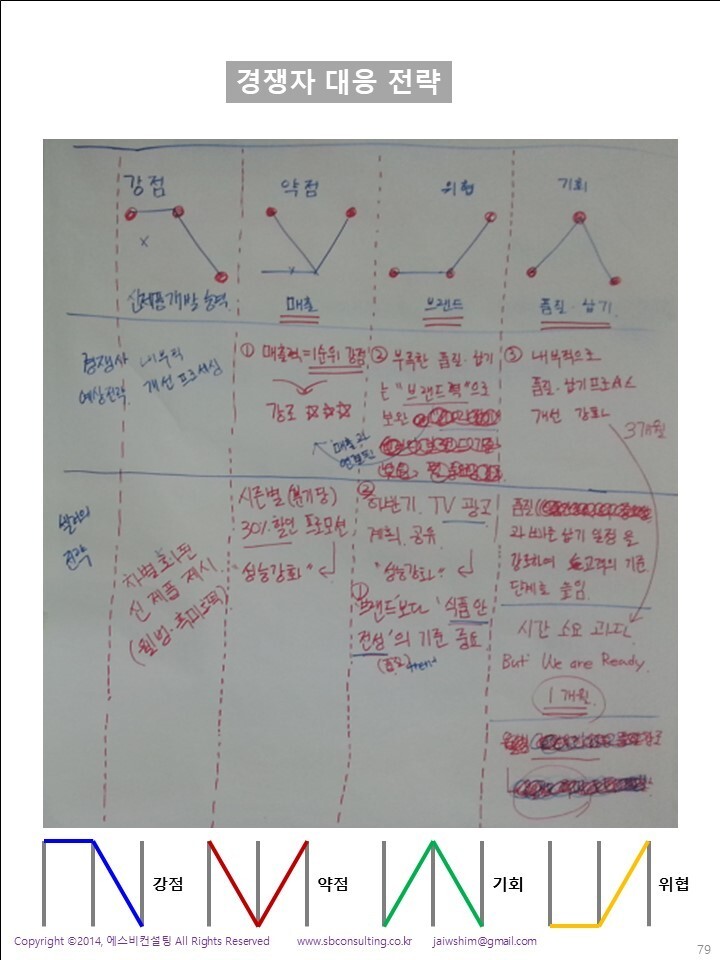 경쟁자 대응 전략
강점
약점
위협
기회
신제품개발 능력
매출
브랜드
품질·납기
경쟁사
예상전략
내부적
개선 프로세싱
① 매출력=1순위 강점
강조 ☆☆☆
매출과
연결된
② 부족한 품질·납기
는 "브랜드력"으로
보완
③ 내부적으로
품질·납기프로세스
개선 강화
3개월
전략
차별화된
신제품 제시
시즌별(분기당)
30% 할인 프로모션
"성능강화"
② 하반기 TV 광고
계획 공유
"성능강화"
①
"브랜드"보다 '식품안
전성'의 기준 중요
품질
과 빠른 납기 일정을
강조하여 고객의 기준
단계로 높임
시간 소요 과다
But We are Ready.
1개월
강점
약점
기회
위협
Copyright ©2014, 에스비컨설팅 All Rights Reserved www.sbconsulting.co.kr jaiwshim@gmail.com
79